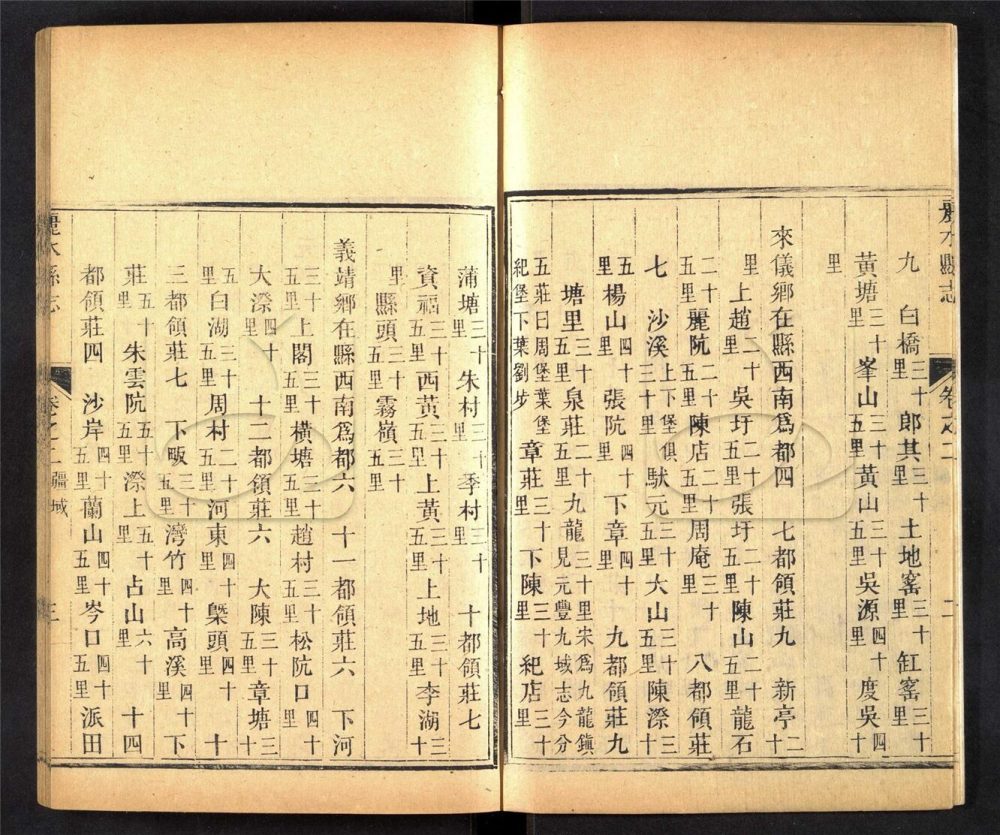 麗水縣志 卷之二 二
九 白橋三十里 郎其三十里 土地窰三十里 缸窰三十里
黃塘三十里 峯山三十五里 黃山三十五里 吳源四十里 度吳四十
里
來儀鄉在縣西南爲都四 七都領莊九 新亭二十
里 上趙二十里 吳圩二十五里 張圩二十五里 陳山二十五里 龍石
二十五里 麗阬二十五里 陳店二十五里 周庵三十里 八都領莊
七 沙溪上下堡俱三十里 䭾元三十五里 大山三十五里 陳漈三十
五里 楊山四十里 張阬四十里 下章四十里 九都領莊九
塘里三十五里 泉莊二十五里 九龍三十里宋爲九龍鎮見元豐九域志今分
五莊曰周堡葉堡紀堡下葉劉步 章莊三十里 下陳三十里 紀店三十里
蒲塘三十里 朱村三十里 季村三十里 十都領莊七
資福三十五里 西黃三十五里 上黃三十五里 上地三十五里 李湖三十
里 縣頭三十五里 霧嶺三十五里
義靖鄉在縣西南爲都六 十一都領莊六 下河
三十五里 上閣三十五里 橫塘三十五里 趙村三十五里 松阬口四十里
大漈四十里 十二都領莊六 大陳三十五里 章塘三十
五里 白湖三十五里 周村二十五里 河東四十里 槩頭四十里 十
三都領莊七 下畈三十五里 灣竹四十里 高溪四十里 下
莊五十里 朱雲阬五十五里 漈上五十里 占山六十里 十四
都領莊四 沙岸四十五里 蘭山四十五里 岑口四十五里 派田
麗水縣志 卷之二 疆域 三